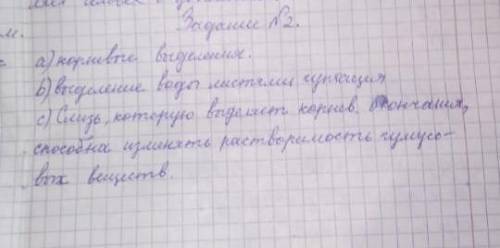 Задание №2.
м.
а) корневые выделения.
b) выделение воды листьями, гуттация
с) Слизь, которую выделяет корнев. окончания,
способна изменять растворимость гумусо-
вых веществ.